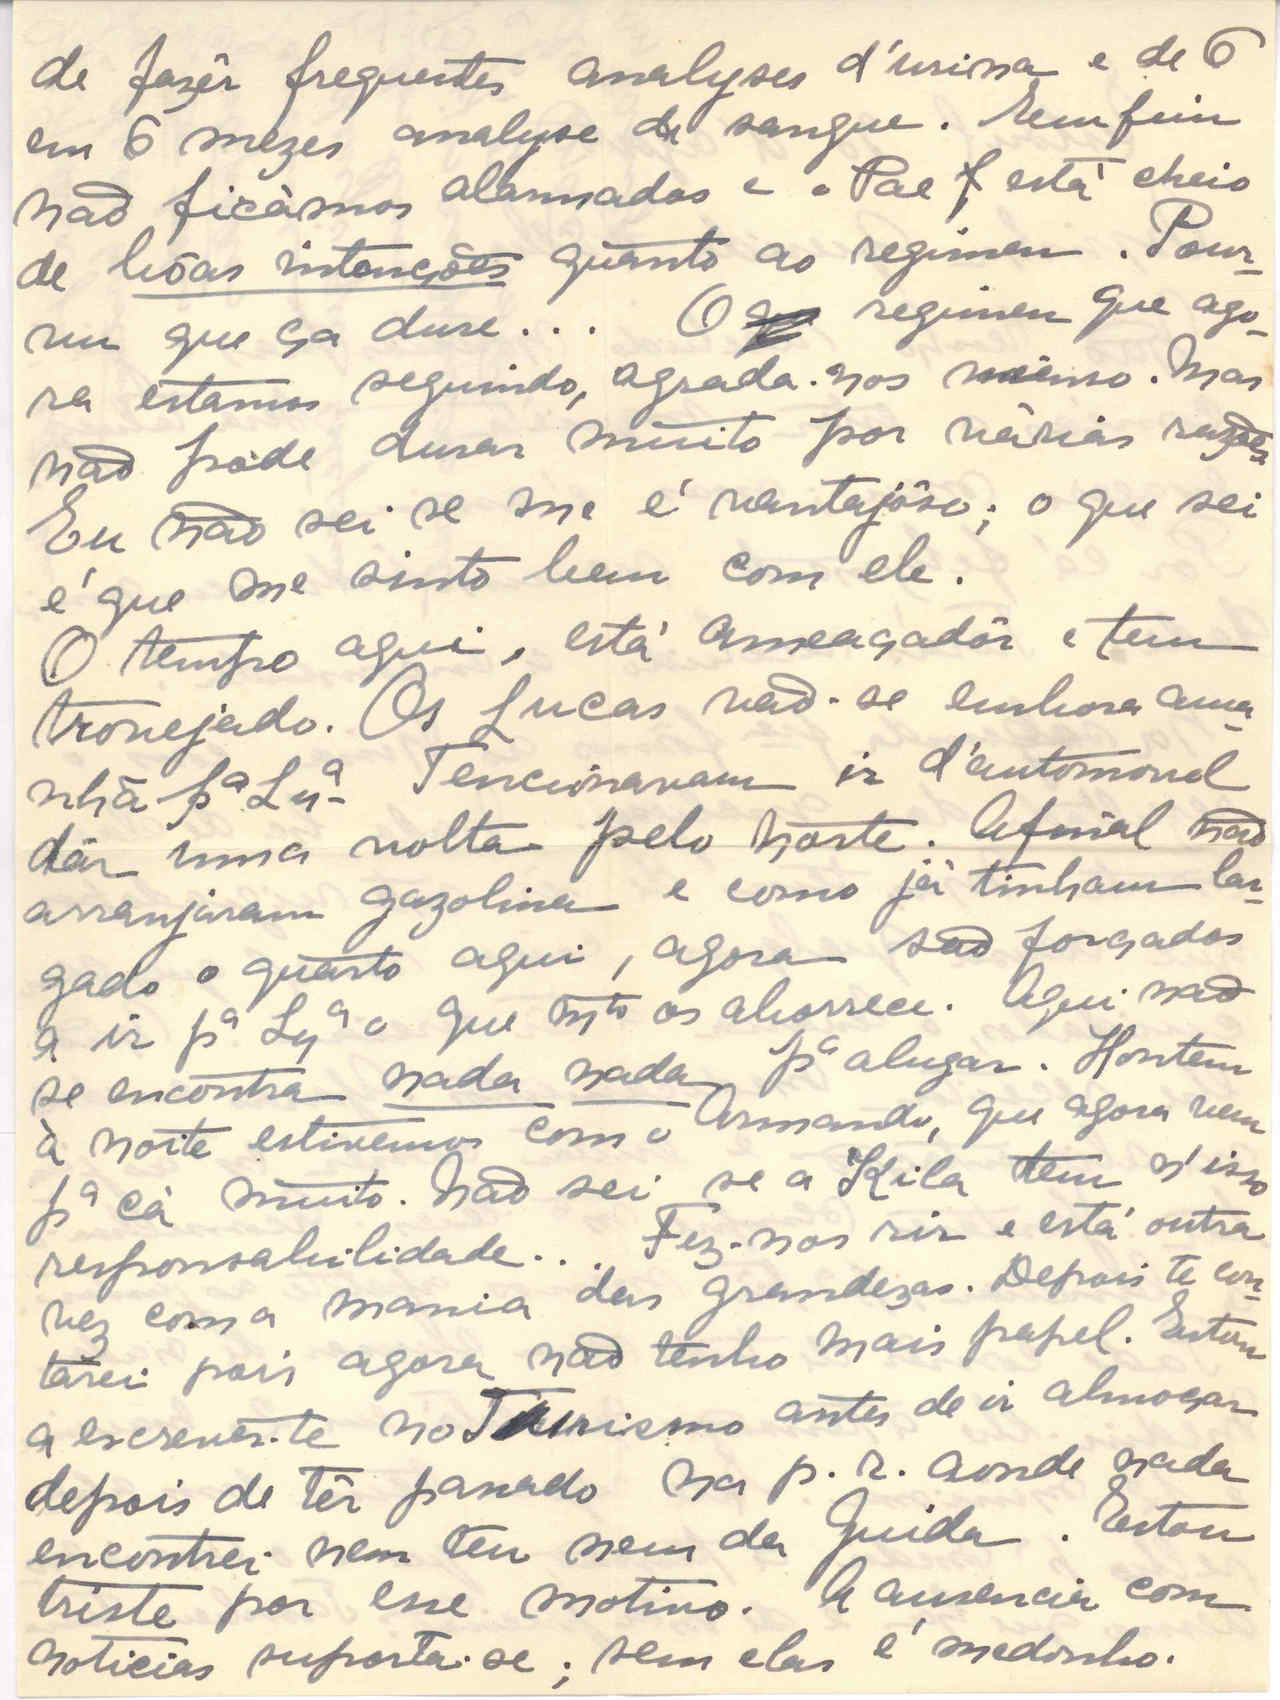 de fazêr frequentes analyses d'urina e de 6
em 6 mezes analyse de sangue. Emfim
não ficàmos alarmados e o Pae f. está cheio
de bôas intenções quanto ao regimen. Pour-
vu que ça dure... O regimen que ago-
ra estamos seguindo, agrada-nos imenso. Mas
não póde durar muito por várias razões.
Eu não sei se me é vantajôso; o que sei
é que me sinto bem com ele.
O tempo aqui, está ameaçadôr e tem
tronejado. Os Lucas vão-se embora ama-
nhã pª Lxª. Tencionavam ir d'automovel
dár uma volta pelo Norte. Afinal não
arranjáram gazolina e como já tinham lar-
gado o quarto aqui, agora são forçados
a ir pª Lxª o que mto os aborrece. Aqui não
se encontra nada nada pª alugar. Hontem
à noite estivemos com o Armando, que agora vem
pª cá muito. Não sei se a Kila tem n'isso
responsabilidade... Fez-nos rir e está outra
vez com a mania das grandezas. Depois te con-
tarei pois agora não tenho mais papel. Estou
a escrever-te no Turismo antes de ir almoçar
depois de têr passado na p. r. aonde nada
encontrei nem teu nem da Guida. Estou
triste por esse motivo. A ausencia com
noticias suporta-se; sem elas é medonho.